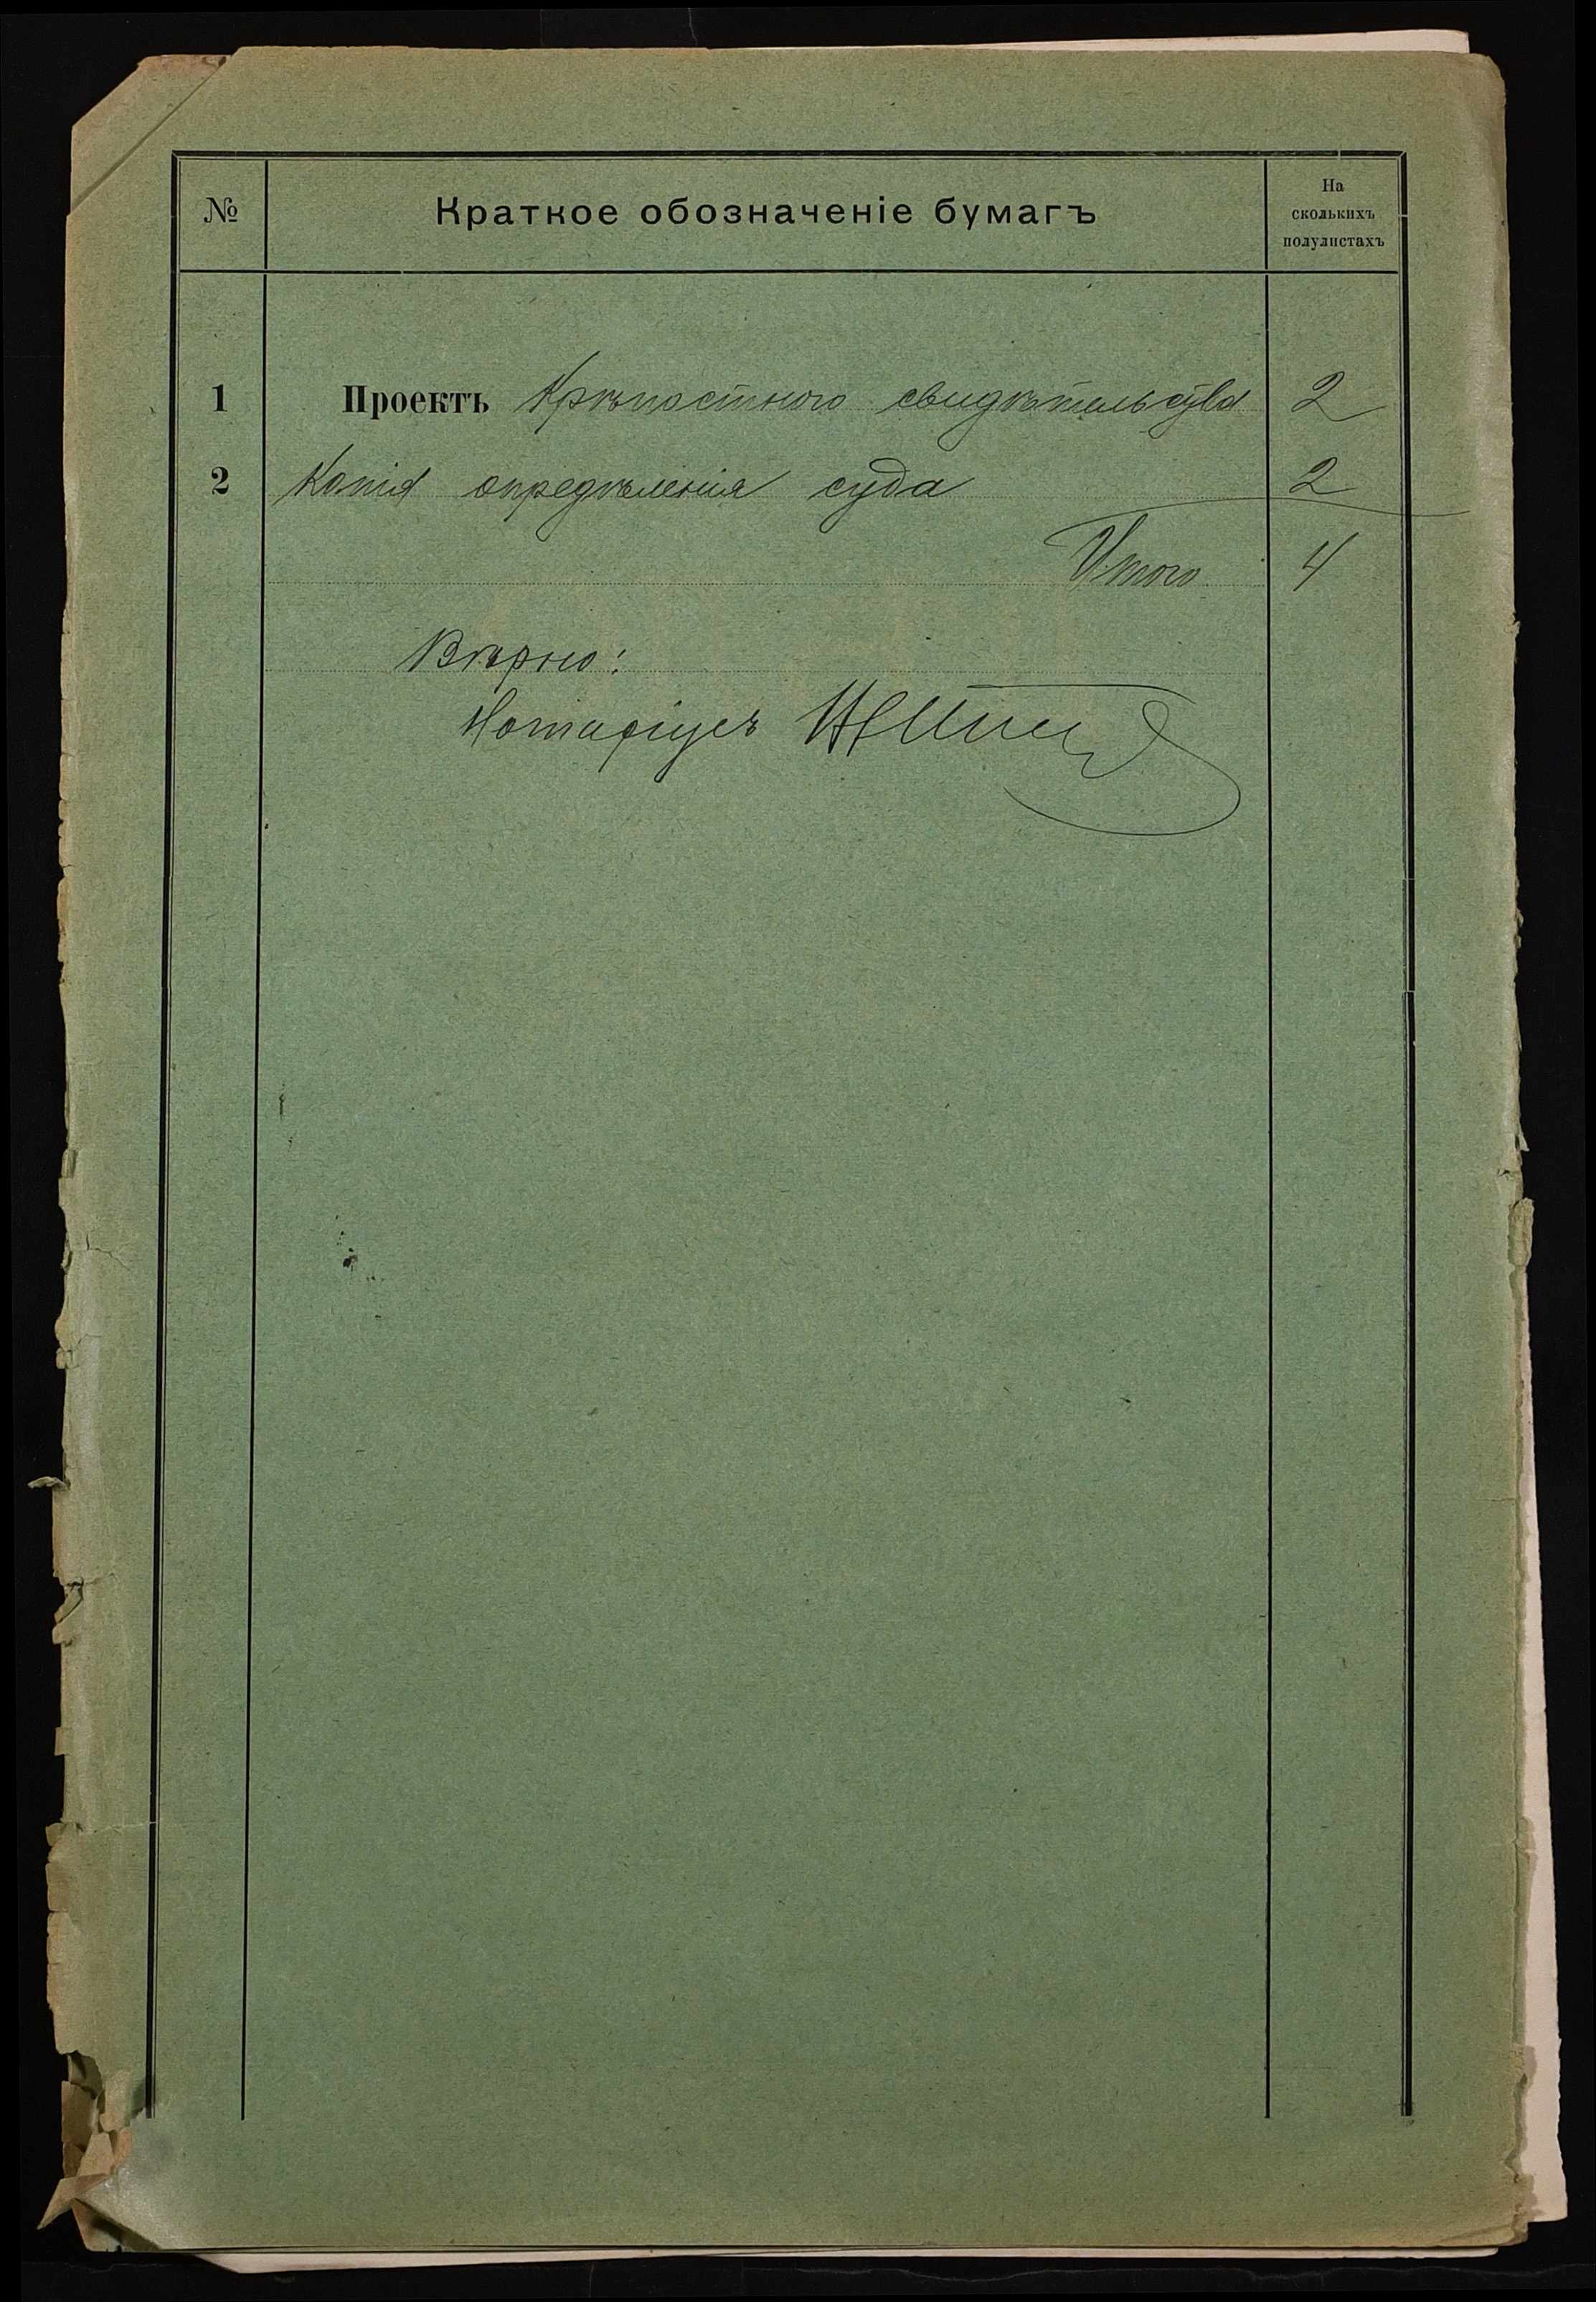 № Краткое обозначеніе бумагъ На
сколькихъ
полулистахъ
1 Проектъ Крѣпостного свидѣтельства 2
2 Копія опредѣленія суда 2
Итого 4
Вѣрно:
Нотаріусъ